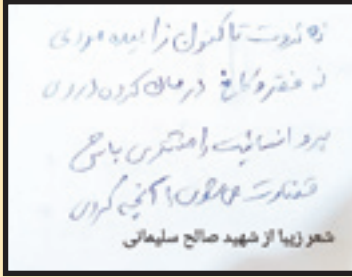 نه ثروت تا کنون زاییده مردی
نه فقر و کاخ درمان کرده دردی
برو انسانیت را مشتری باش
تفاوت
شعر زیبا از شهید صالح سلیمانی